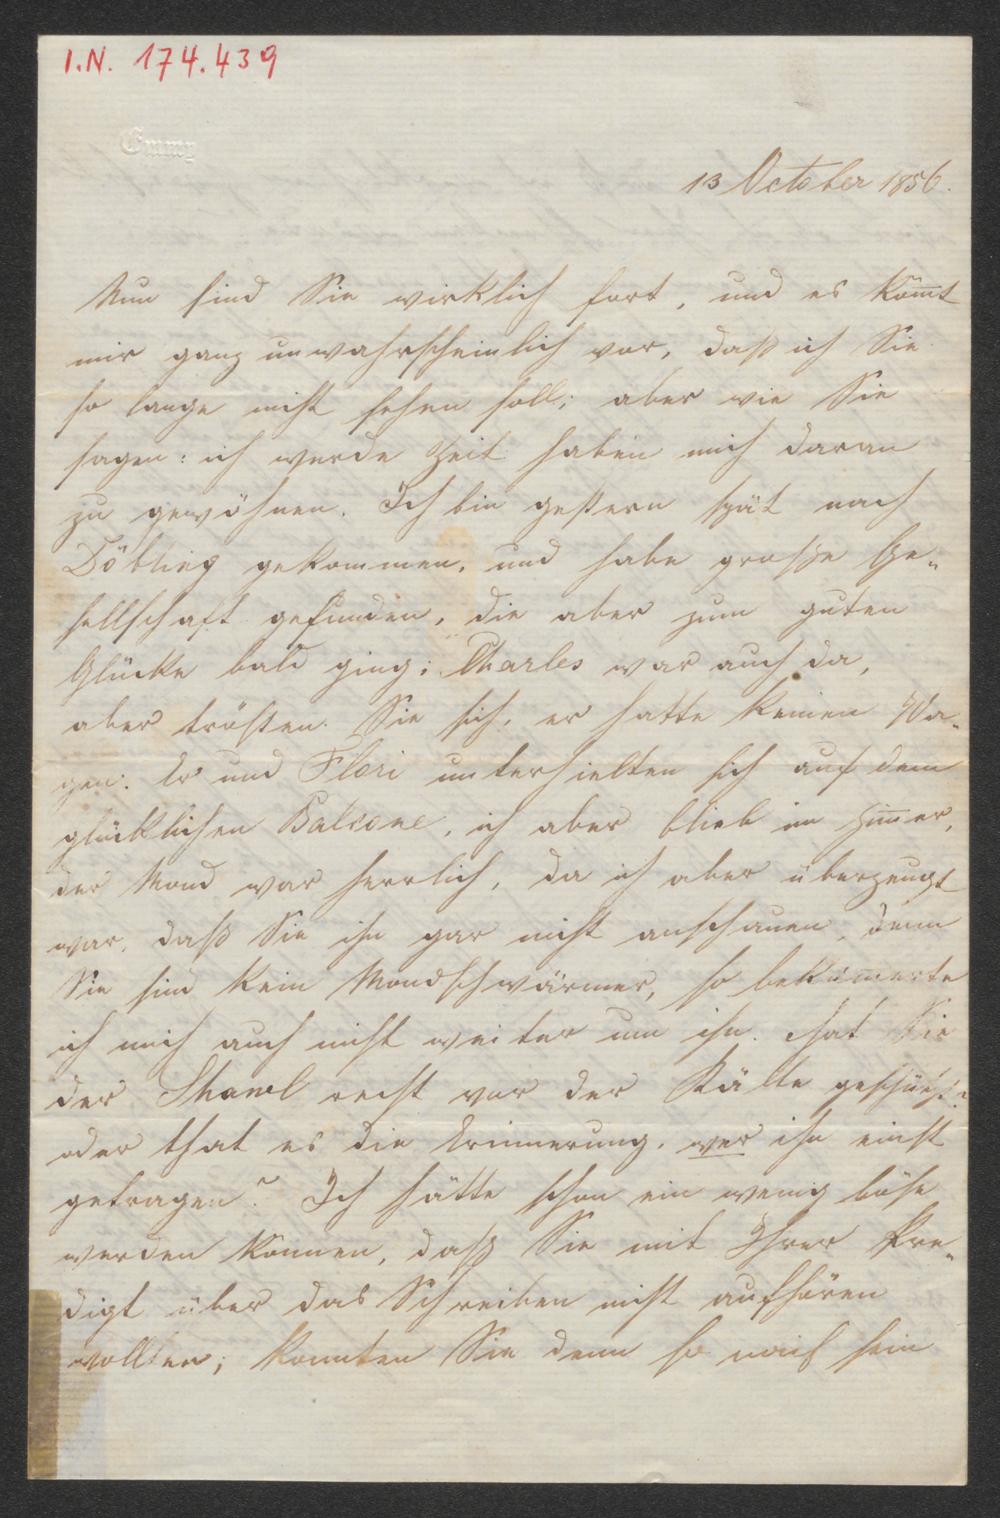 I.N. 174.439
Emmy
13 October 1856.
Nun sind Sie wirklich fort, und es kom̄t
mir ganz unwahrscheinlich vor, daß ich Sie
so lange nicht sehen soll; aber wie Sie
sagen: ich werde Zeit haben mich daran
zu gewöhnen. Ich bin gestern spät nach
Döbling gekommen, und habe große Ge-
sellschaft gefunden, die aber zum guten
Glücke bald ging; Charles war auch da,
aber trösten Sie sich, er hatte keinen Wa-
gen. Er und Flori unterhielten sich auf dem
glücklichen Balcone, ich aber blieb im Zim̄er,
der Mond war herrlich, da ich aber überzeugt
war, daß Sie ihn gar nicht anschauen, denn
Sie sind kein Mondschwärmer, so beküm̄erte
ich mich auch nicht weiter um ihn. Hat Sie
der Shawl recht vor der Kälte geschützt?
oder that es die Erinnerung, wer ihn einst
getragen? Ich hätte schon ein wenig böse
werden können, daß Sie mit Ihrer Pre-
digt über das Schreiben nicht aufhören
wollten; konnten Sie denn so naif sein